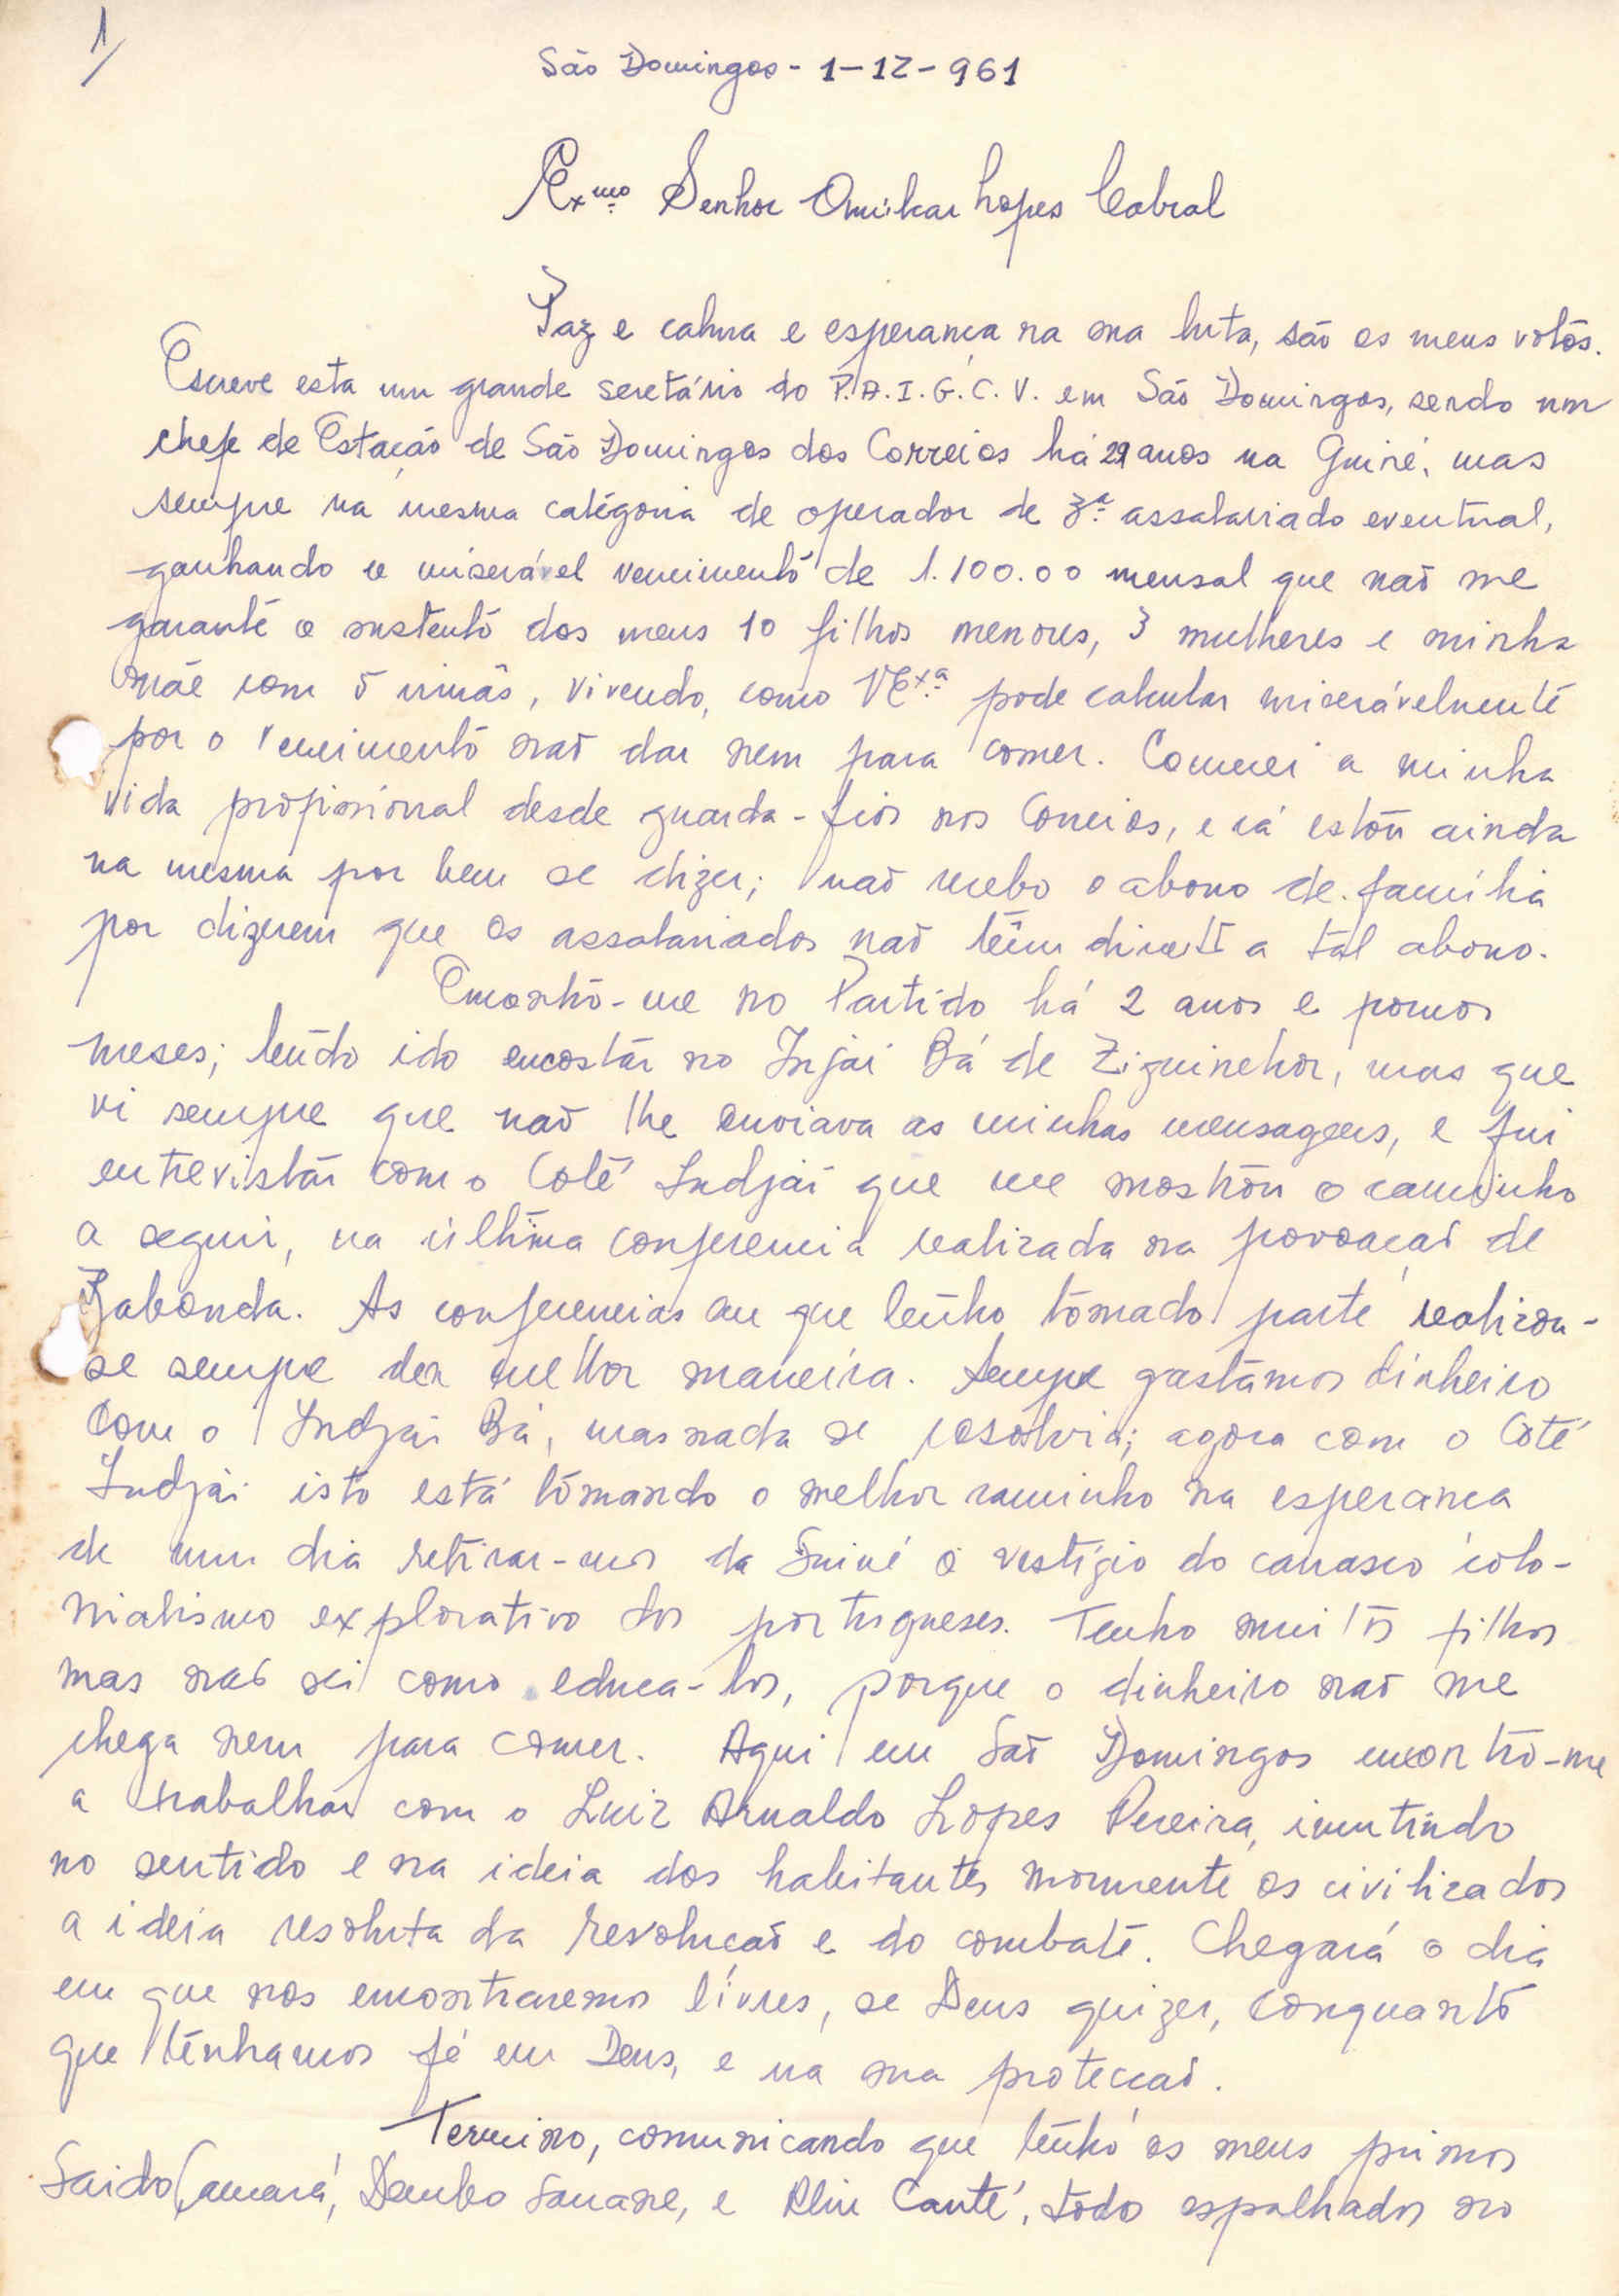 1/
São Domingos - 1-12-961
Exmo. Senhor Amilcar Lopes Cabral
Paz e calma e esperança na sua luta, são os meus votos.
Escreve esta um grande secretário do P.A.I.G.C.V. em São Domingos, sendo um
chefe de Estação de São Domingos dos Correios há 29 anos na Guiné, mas
sempre na mesma categoria de operador de 3.ª assalariado eventual,
ganhando o miserável vencimento de 1.100.00 mensal que não me
garante o sustento dos meus 10 filhos menores, 3 mulheres e minha
mãe com 5 irmãs, vivendo, como VExª pode calcular miserávelmente
por o vencimento não dar nem para comer. Comecei a minha
vida profissional desde guarda-fios nos Correios, e cá estou ainda
na mesma por bem se dizer; não recebo o abono de família
por dizerem que os assalariados não têm direito a tal abono.
Encontro-me no Partido há 2 anos e poucos
meses; tendo ido encostar no Injai Bá de Ziguinchor, mas que
vi sempre que não lhe enviava as minhas mensagens, e fui
entrevistar com o Coté Indjai que me mostrou o caminho
a seguir, na última conferencia realizada na povoação de
Zabonda. As conferencias em que tenho tomado parte realizou-
se sempre da melhor maneira. Sempre gastámos dinheiro
com o Indjai Bá, mas nada se resolvia; agora com o Coté
Indjai isto está tomando o melhor caminho na esperança
de um dia retirar-mos da Guiné o vestígio do carrasco colo-
nialismo explorativo dos portugueses. Tenho muitos filhos
mas não sei como educa-los, porque o dinheiro não me
chega nem para comer. Aqui em São Domingos encontro-me
a trabalhar com o Luiz Arnaldo Lopes Pereira, incutindo
no sentido e na ideia dos habitantes mormente os civilizados
a ideia resoluta da revolução e do combate. Chegará o dia
em que nos encontraremos livres, se Deus quizer, conquanto
que tenhamos fé em Deus, e na sua protecção.
Termino, comunicando que tenho os meus primos
Saido Camará, Dembo Sanane, e Aliu Canté, todo espalhados no